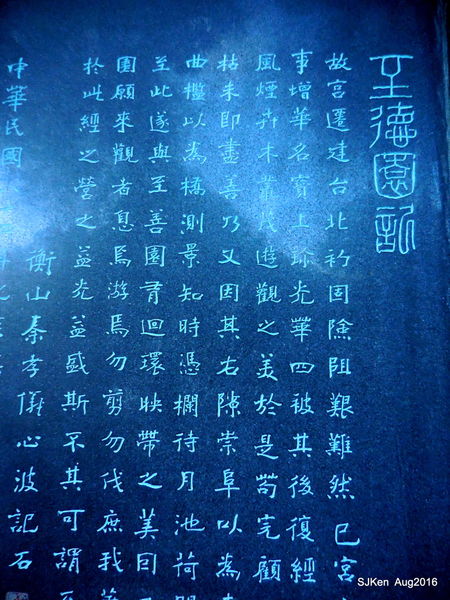 至德園記
故宮遷建台北初固險阻艱難然已宮
事增華名實上珍光華四被其後復經
風煙卉木叢茂遊觀之美於是苟完顧
未即盡善乃又因其右隙崇阜以為
曲檻以為橋測景知時憑欄待月池荷
至此遂與至善園有迴環映帶之美曰
園願來觀者息焉游焉勿剪勿伐庶我
於此經之營之益光益盛斯不其可謂
衡山秦孝儀心波記石
中華民國
SJKen Aug2016